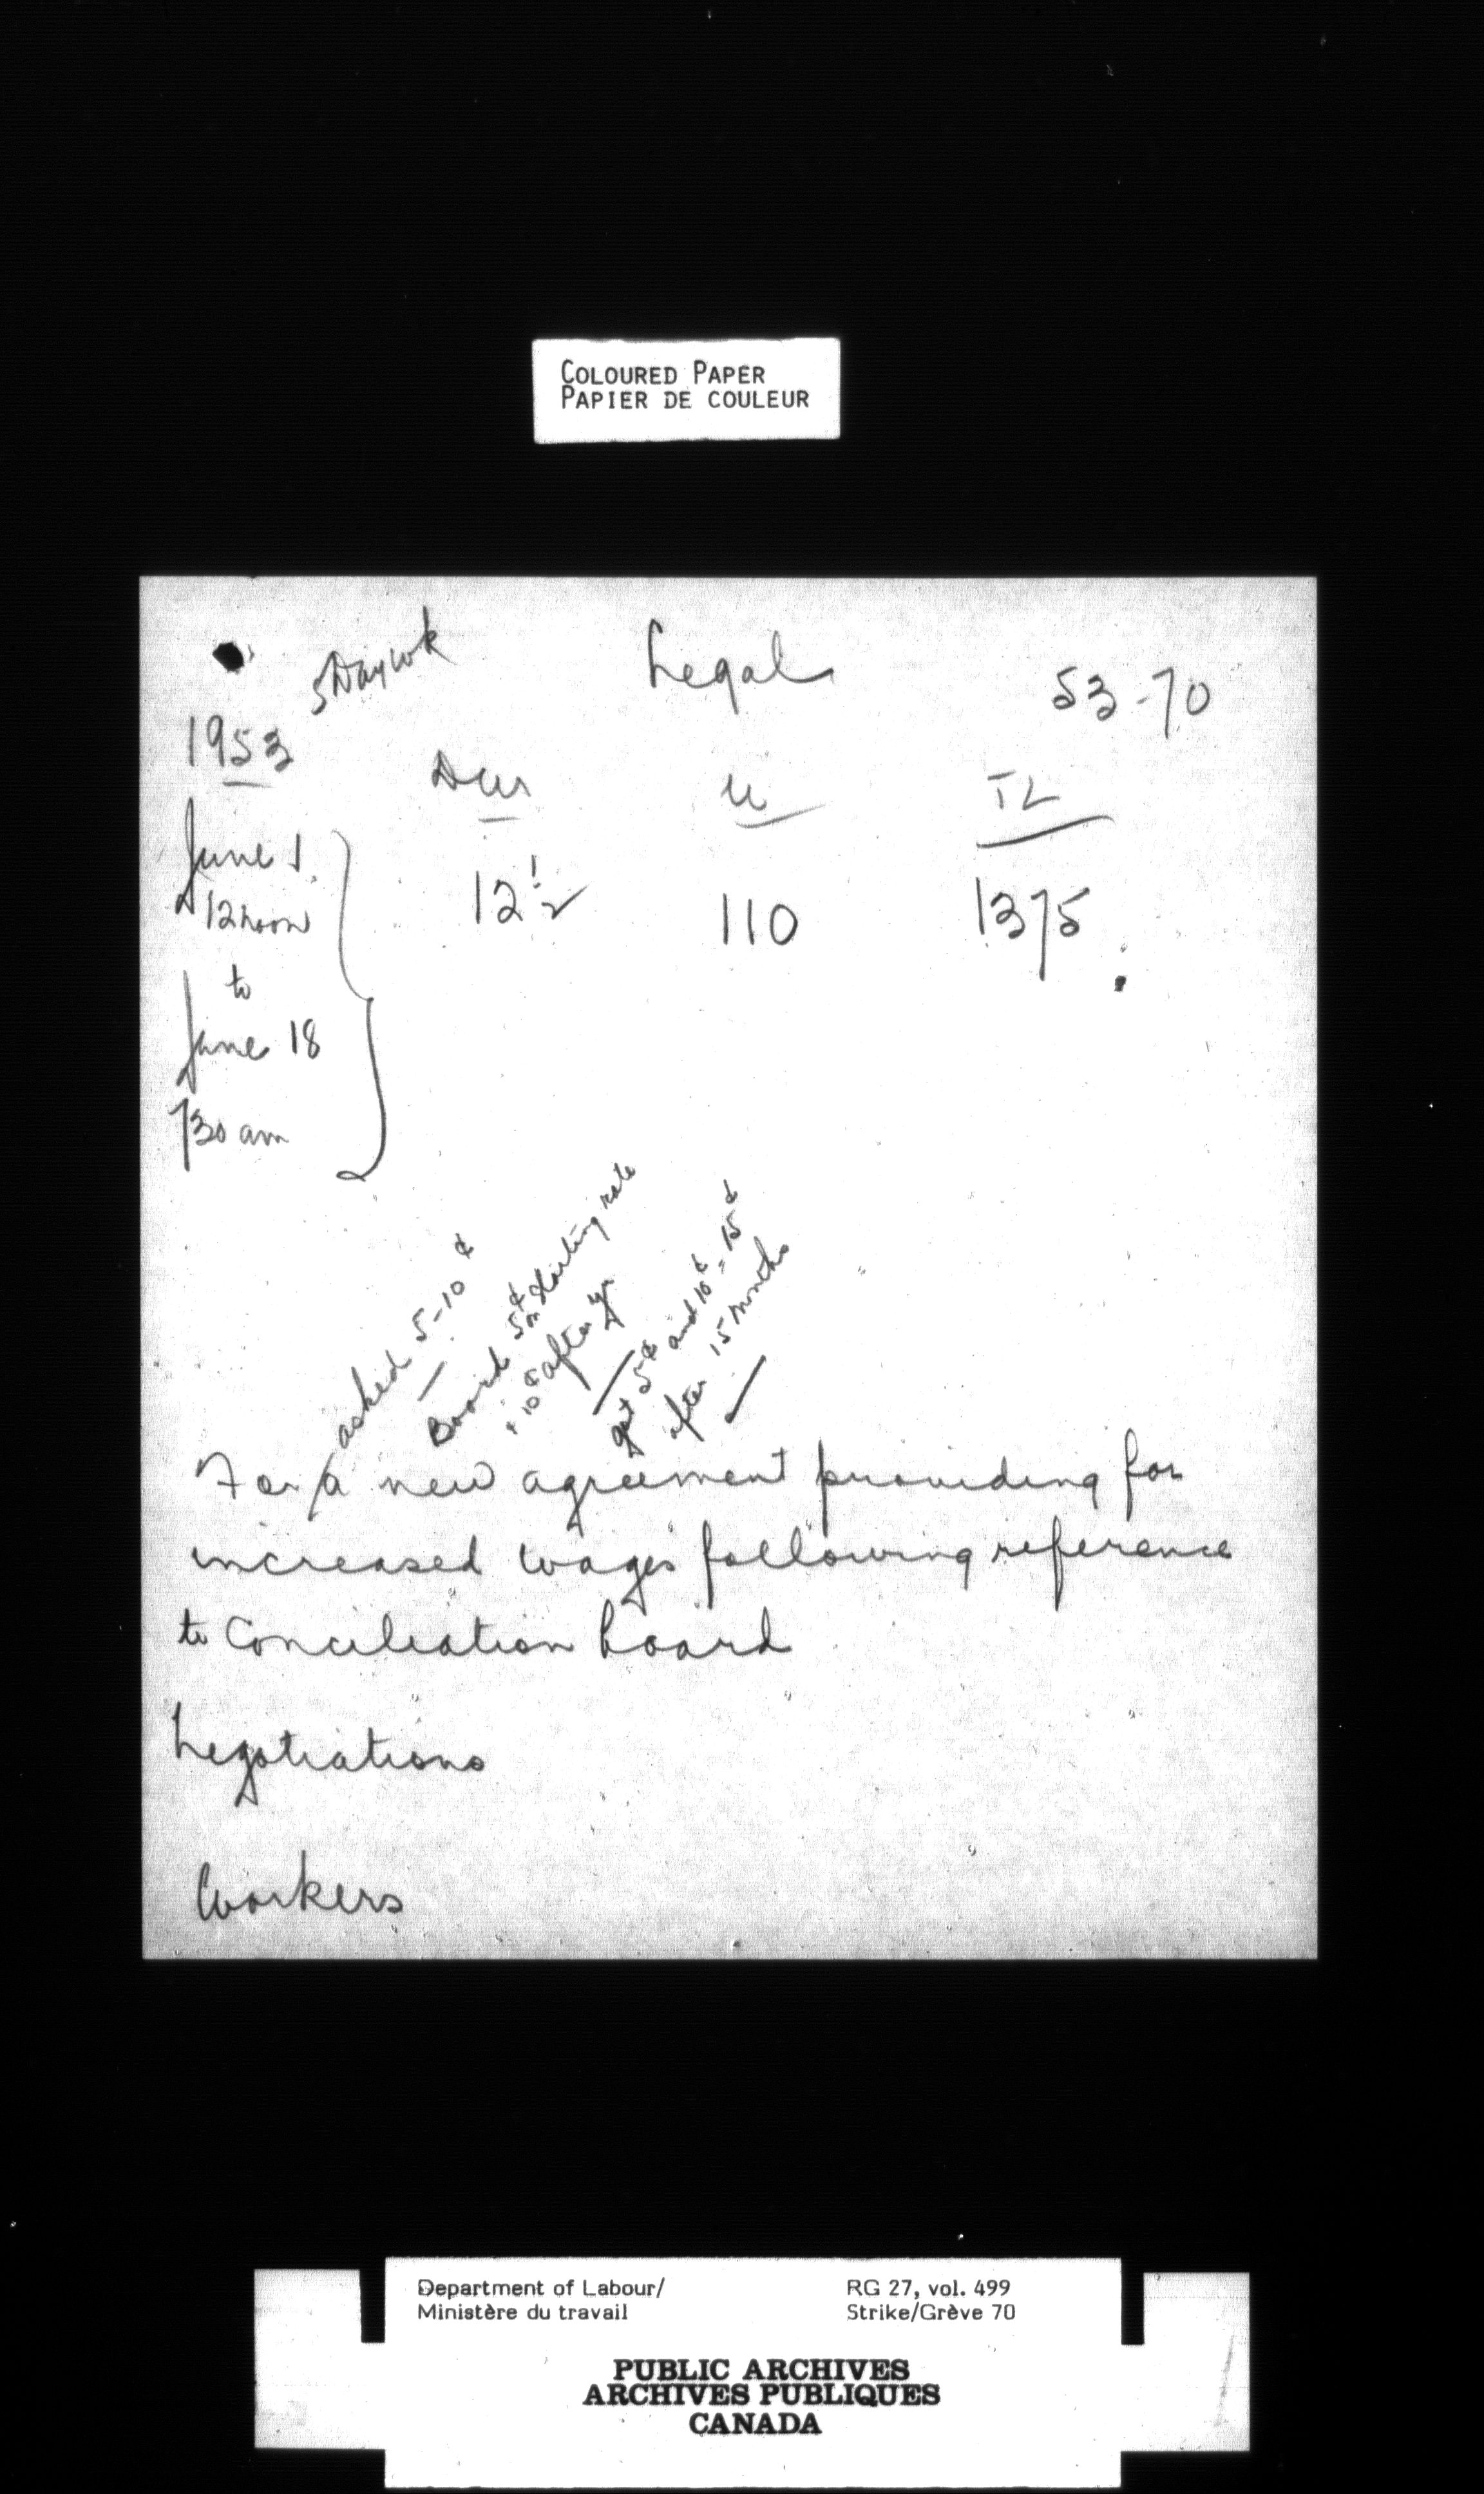 COLOURED PAPER
PAPIER DE COULEUR
5 Day wk
Legal
53-70
1953
Dur
W
TL
June 1
12 noon
to
June 18
730 am
12 1/2
110
1375
asked 5-10¢
Board 5¢ on starting rate
+ 10¢ after yr
got 5¢ and 10¢ = 15¢
after 15 months
For a new agreement providing for
increased wages following reference
to Conciliation board
Negotiations
Workers
Department of Labour/
Ministère du travail
RG 27, vol. 499
Strike/Grève 70
PUBLIC ARCHIVES
ARCHIVES PUBLIQUES
CANADA